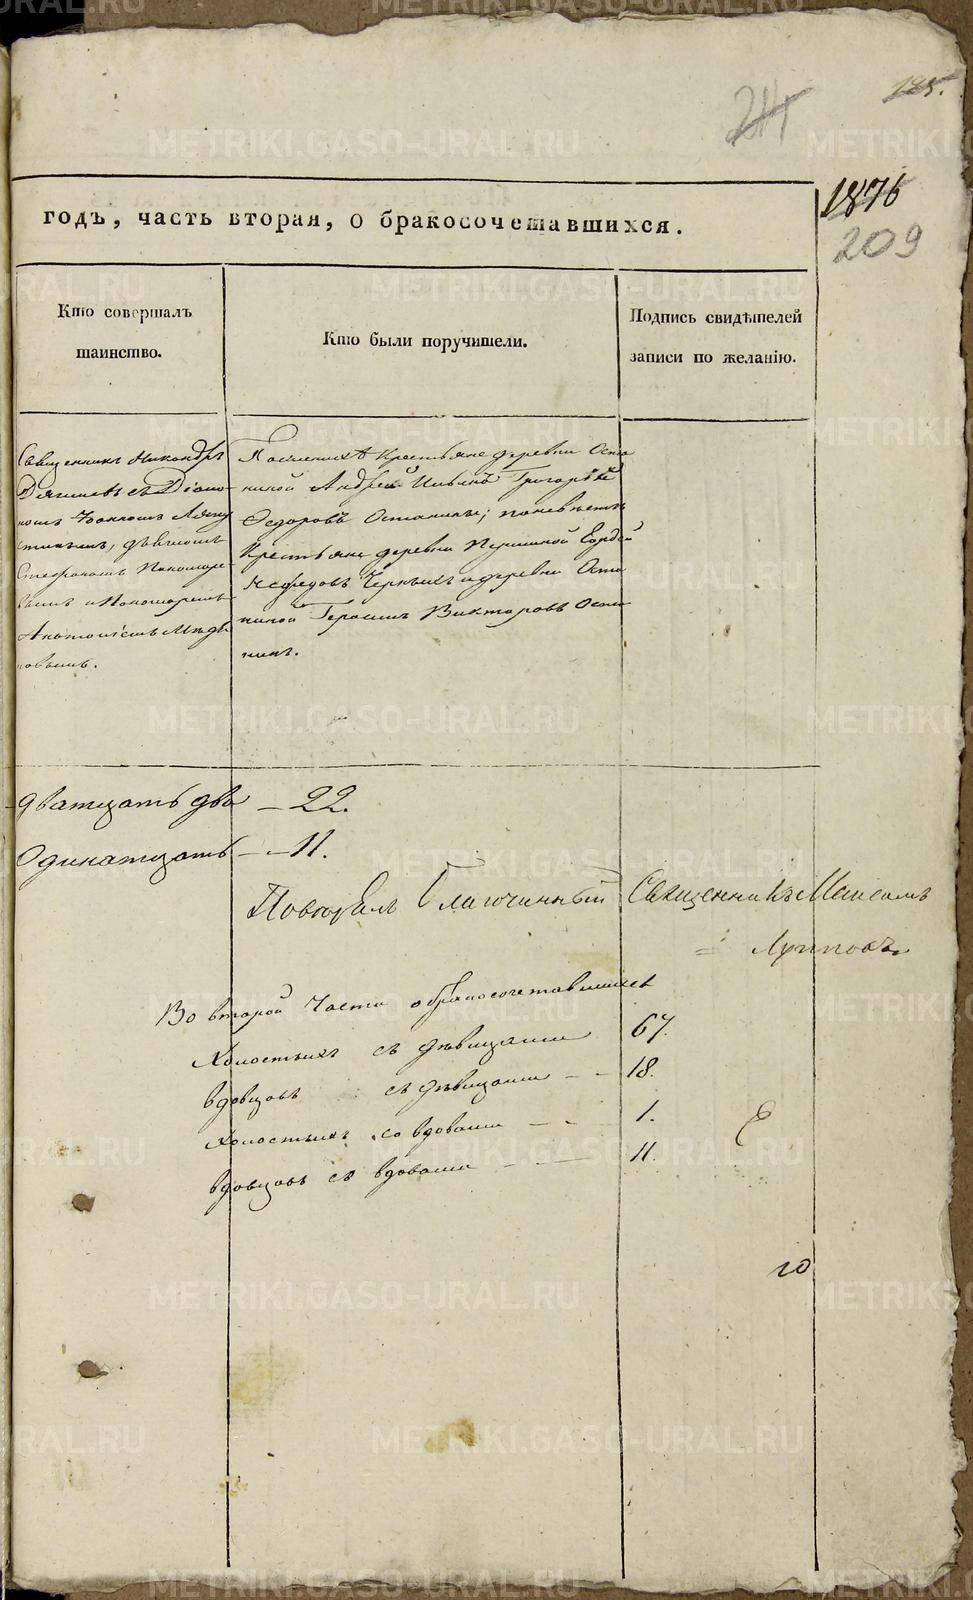 125.
211
1876
209
годъ, часть вторая, о бракосочетавшихся.
Кто совершалъ
таинство.
Кто были поручители.
Подпись свидѣтелей
записи по желанію.
Священникъ Никандръ
съ Діако-
номъ Іоанномъ
Стефаномъ Пономаре-
вымъ и Пономаремъ
новымъ.
Крестьяне деревни Оста
ниной Андрей Ильинъ Григорій
Ѳедоровъ Останины; по невѣстѣ
Крестьяне деревни Гордѣй
Черныхъ и деревни Оста
ниной Герасимъ Викторовъ Оста
нинъ.
Дватцать два — 22.
Одинатцать — 11.
Повѣрялъ Благочинный Священникъ
Во второй части о бракосочетавшихся
Холостыхъ съ дѣвицами 67.
вдовцовъ съ дѣвицами — 18.
Холостыхъ со вдовами — 1.
вдовцовъ съ вдовами — 11.